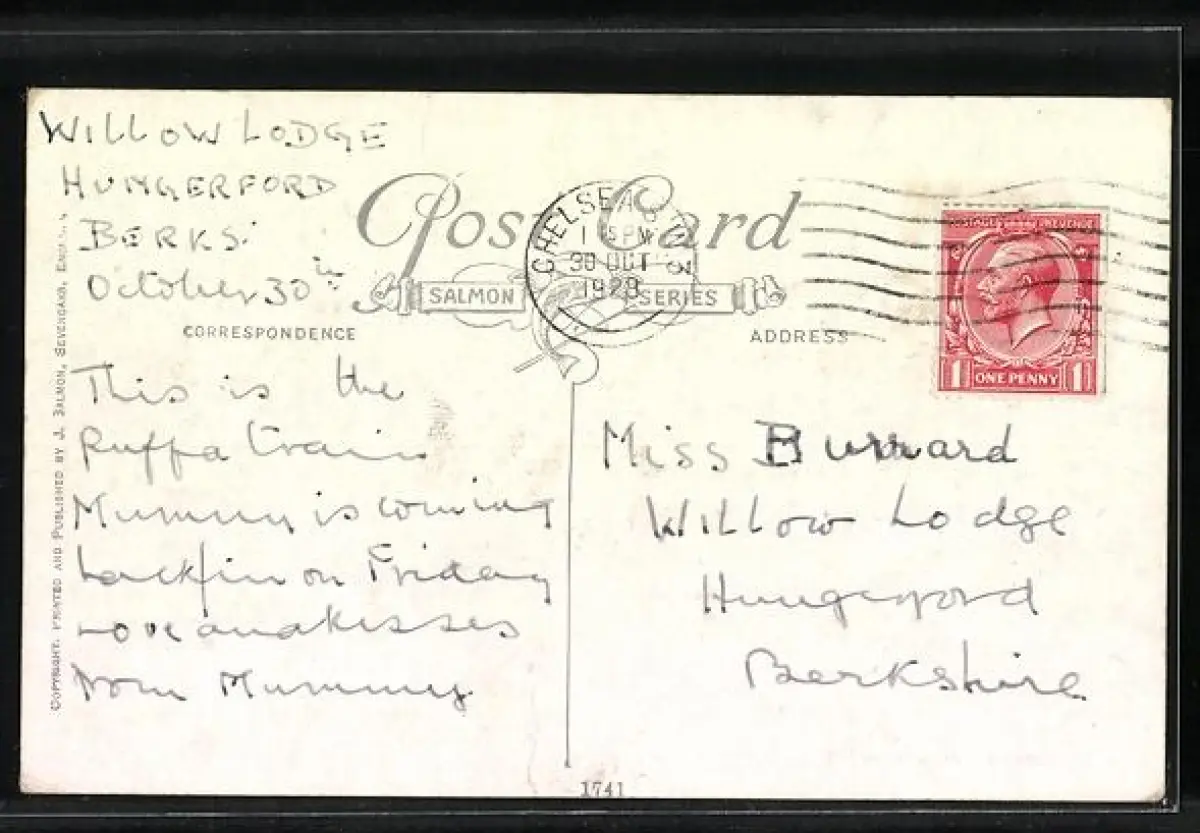 WILLOW LODGE
HUNGERFORD
BERKS.
October 30th
Post Card
SALMON SERIES
CORRESPONDENCE
ADDRESS
CHELSEA S.W.3
1 15 PM
30 OCT
1928
POSTAGE REVENUE
1 ONE PENNY 1
This is the
Puffa train
Mummy is coming
back on Friday
Love and kisses
from Mummy
Miss Burrard
Willow Lodge
Hungerford
Berkshire
COPYRIGHT. PRINTED AND PUBLISHED BY J. SALMON, SEVENOAKS, ENGL.
1741